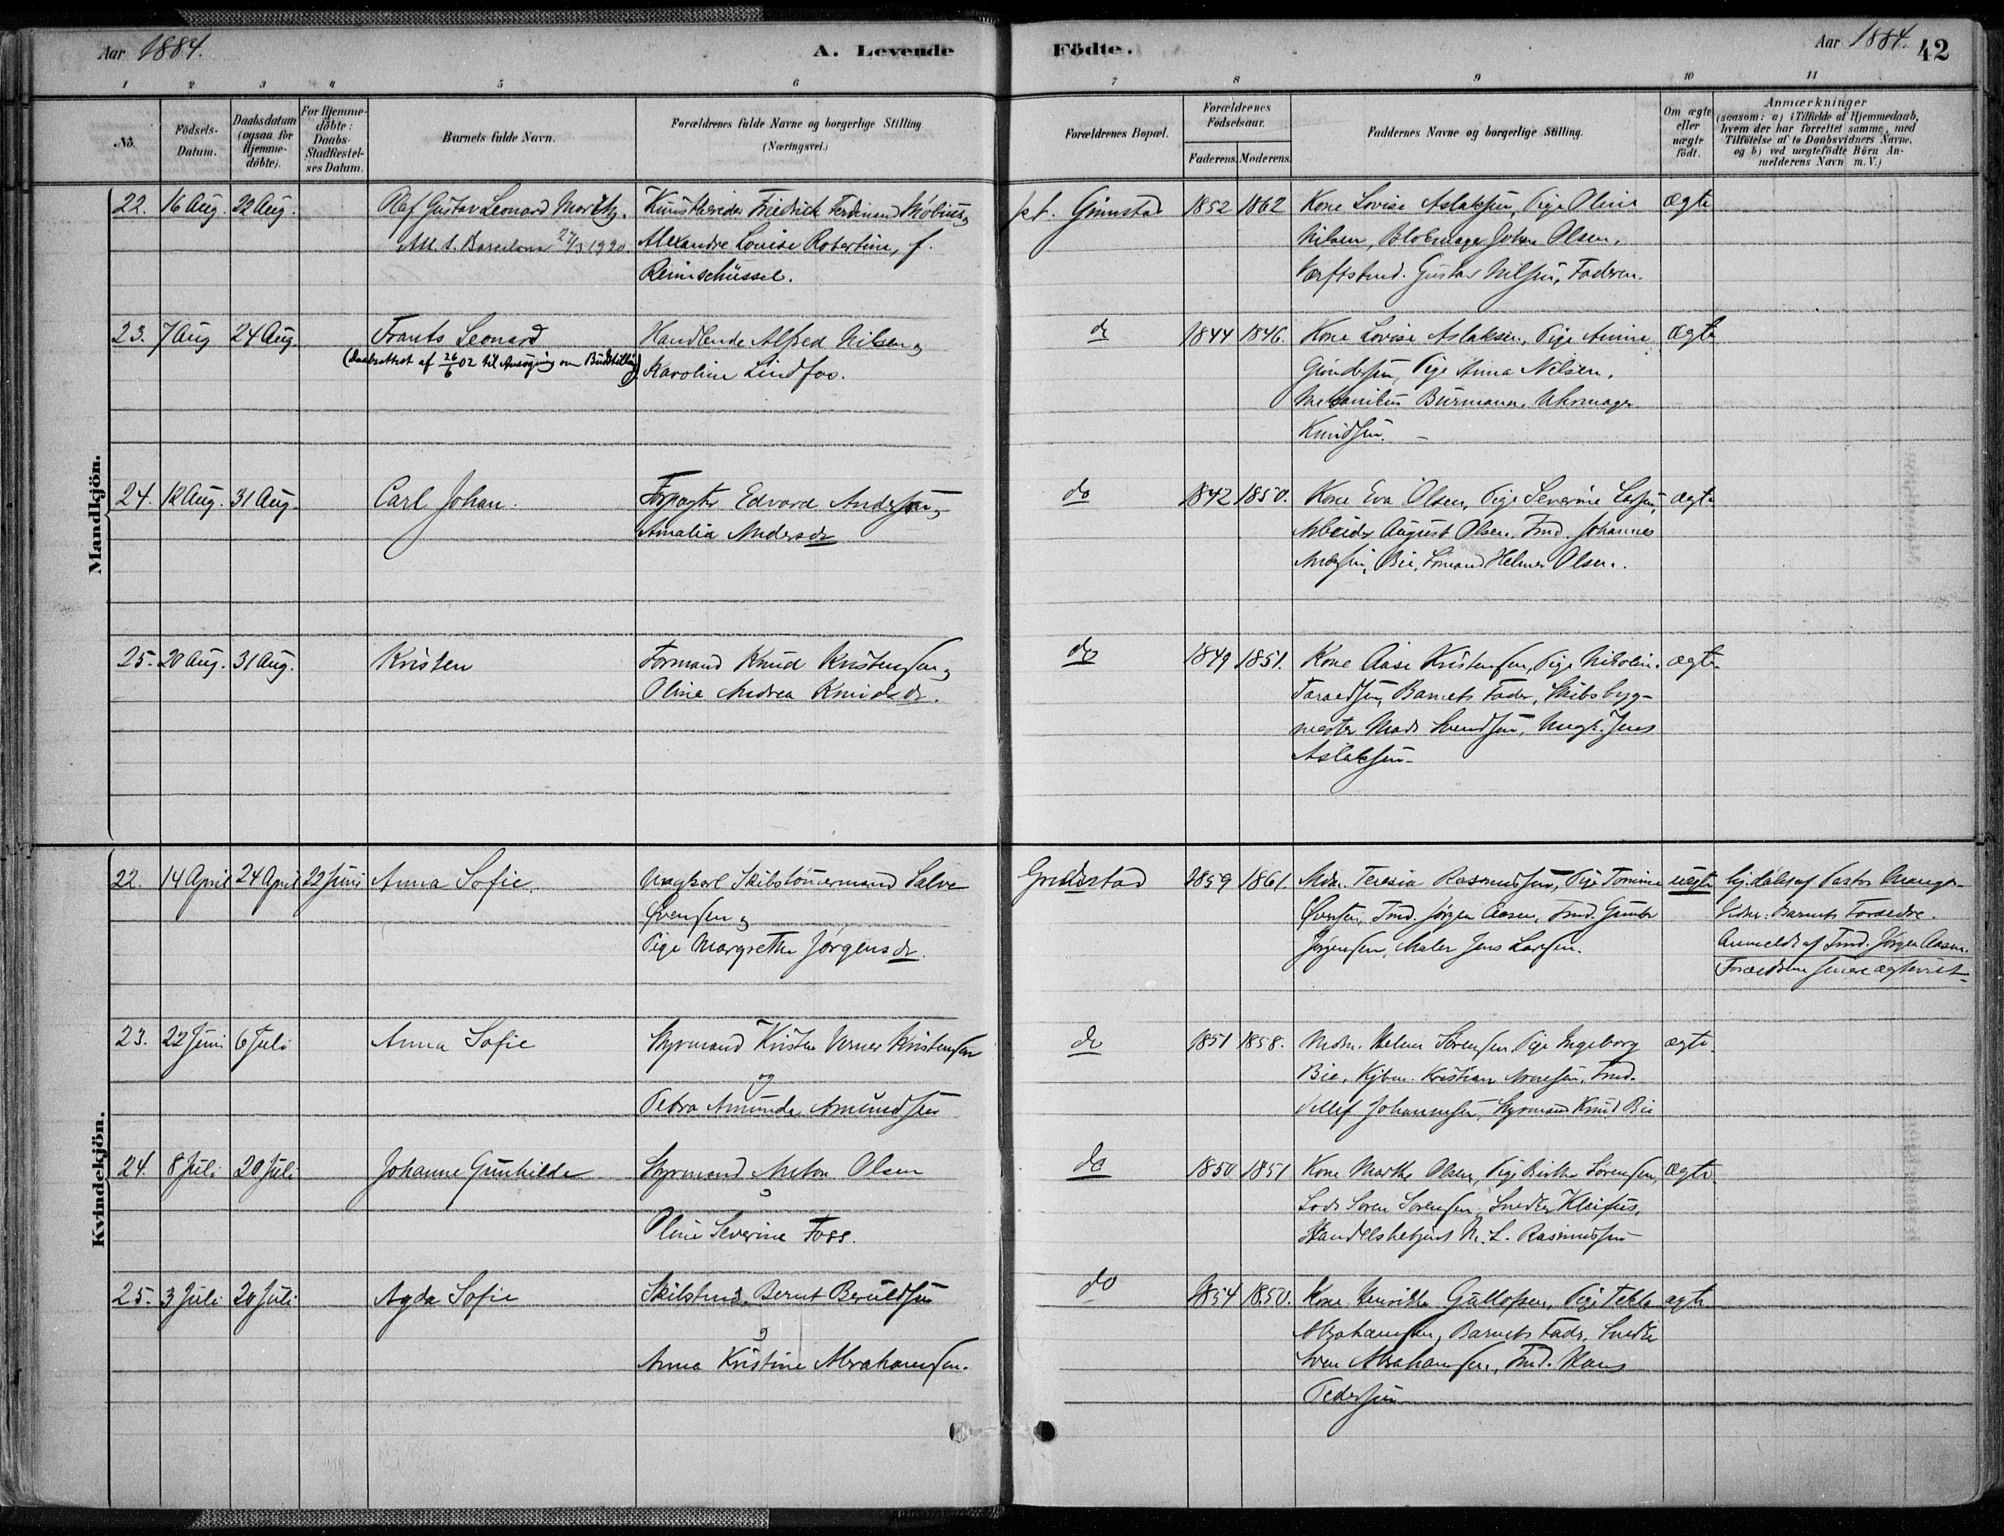 Aar 1884.
A. Levende
Födte.
Aar 1884.
42
1 2 3 4 5 6 7 8 9 10 11
No.
Födsels-
Datum.
Daabsdatum
(ogsaa for
Hjemme-
döbte).
For Hjemme-
döbte:
Daabs-
Stadfæstel-
ses Datum.
Barnets fulde Navn.
Forældrenes fulde Navne og borgerlige Stilling.
(Næringsvei.)
Forældrenes Bopæl.
Forældrenes
Födselsaar.
Faderens. Moderens.
Faddernes Navne og borgerlige Stilling.
Om ægte
eller
uægte
födt.
Anmærkninger
(saasom: a) i Tilfælde af Hjemmedaab,
hvem der har forrettet samme, med
Tilföielse af to Daabsvidners Navne,
og b) ved uægtefödte Börn An-
melderens Navn m. V.)
Mandkjön.
22. 16 Aug. 22 Aug. Olaf Gustav Leonard Moritz. Friedrick Ferdinand Möbius og
Att. t. Barcelona 27/3 1920. Alexandra Lovise Robertine, f.
Reimschüssel.
Grimstad 1852 1862 Kone Lovise Aslaksen, Pige Oline ægte
Nilsen, Blokmager Johan Olsen,
Gustav Nilsen, Faderen.
23. 7 Aug 24 Aug. Frants Leonard Handlende Alfred Nilsen og
(daabsattest af 26/6 02 til Ansøgning om
Karoline Lindfos.
do 1844 1846. Kone Lovise Aslaksen, Pige ægte
Gundersen, Pige Anna Nilsen,
Mekanikus Burmann, Uhrmager
Knudsen.
24. 12 Aug. 31 Aug. Carl Johan. Forpagter Edvard Andersen og
Amalia Andersdr
do 1842 1850. Kone Eva Olsen, Pige Severine ægte
Arbeider August Olsen, Tmd. Johannes
Bie, Helmer Olsen.
25. 20 Aug. 31 Aug. Kristen Formand Knud Kristensen og
Oline Andrea Knudsdr.
do 1849 1851. Kone Aase Kristensen, Pige ægte
Taraldsen, Barnets Fader, Skibsbyg-
mester Mads Svendsen, Ungk. Jens
Aslaksen
Kvindekjön.
22. 14 April 24 April 22 Juni Anna Sofie. Ungkarl Skibstömmermand Salve
Svensen og
Pige Margrethe Jörgensdr.
Grimstad 1859 1861. Mdm. Teresia Rasmussen, Pige Tomine uægte hj. döbt af Pastor
Svensen, Tmd. Jörgen Aasen, Tmd. Gunder Vidner: Barnets Forældre.
Jörgensen, Maler Jens Larsen. Anmeldt af Tmd. Jörgen Aasen.
Forældrene senere ægteviet
23. 22 Juni 6 Juli Anna Sofie Styrmand Kristen Verner Kristensen
og
Petra Amunda Amundsen
do 1851 1858. Mdm. Helene Sörensen, Pige Ingeborg ægte.
Bie, Kjbm. Kristian Tmd.
Johannesen, Styrmand Knud Bie
24. 8 Juli 20 Juli Johanne Gunhilde Styrmand Anton Olsen
og
Oline Severine Foss.
do 1850 1851 Kone Marthe Olsen, Pige Birthe Sörensen, ægte
Lods Sören Sörensen, Snedker
Handelsbetjent N. L. Rasmussen
25. 3 Juli 20 Juli Agda Sofie Skibstmd. Bernt Beruldsen
og
Anna Kristine Abrahamsen.
do 1854 1850. Kone Henrikke Gullofsen, Pige Tekla ægte
Abrahamsen, Barnets Fader, Snedker
Sven Abrahamsen, Tmd. Hans
Pedersen